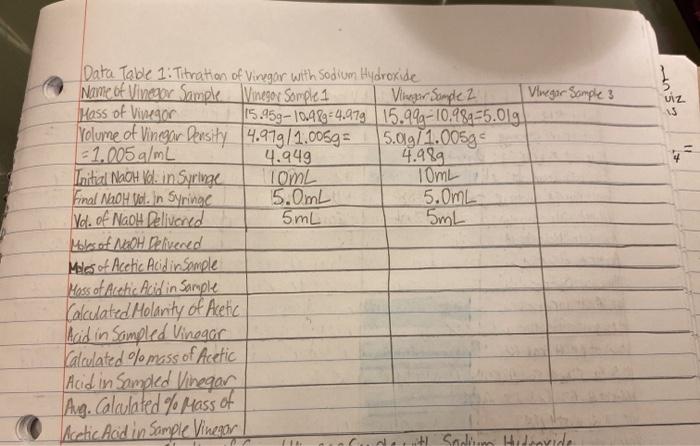 Data Table 1: Titration of Vinegar with Sodium Hydroxide
Name of Vinegar Sample Vinegar Sample 1 Vinegar Sample 2 Vinegar Sample 3
Mass of Vinegar 15.95g-10.98g=4.97g 15.99g-10.98g=5.01g
Volume of Vinegar Density 4.97g/1.005g= 5.01g/1.005g=
=1.005g/mL 4.94g 4.98g
Initial NaOH Vol. in Syringe 10mL 10mL
Final NaOH Vol. in Syringe 5.0mL 5.0mL
Vol. of NaOH Delivered 5mL 5mL
Moles of NaOH Delivered
Moles of Acetic Acid in Sample
Mass of Acetic Acid in Sample
Calculated Molarity of Acetic
Acid in Sampled Vinegar
Calculated % mass of Acetic
Acid in Sampled Vinegar
Avg. Calculated % Mass of
Acetic Acid in Sample Vinegar
Sodium Hydroxide
viz
is
4 =